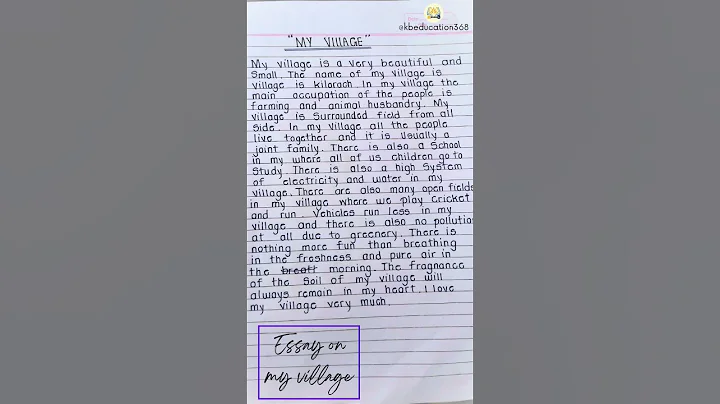 @kbeducation368
"MY VILLAGE"
My village is a very beautiful and
Small. The name of my village is
village is kilarach In my village the
main occupation of the people is
farming and animal husbandry. My
village is Surrounded field from all
Side. In my village all the people
live together and it is usually a
joint family. There is also a School
in my where all of us children go to
Study. There is also a high System
of electricity and water in my
village. There are also many open fields
in my village where we play Cricket
and run. Vehicles run less in my
village and there is also no pollution
at all due to greenery. There is
nothing more fun than breathing
in the freshness and pure air in
the breatt morning. The fragnance
of the Soil of my village will
always remain in my heart. I love
my village very much.
Essay on
my village